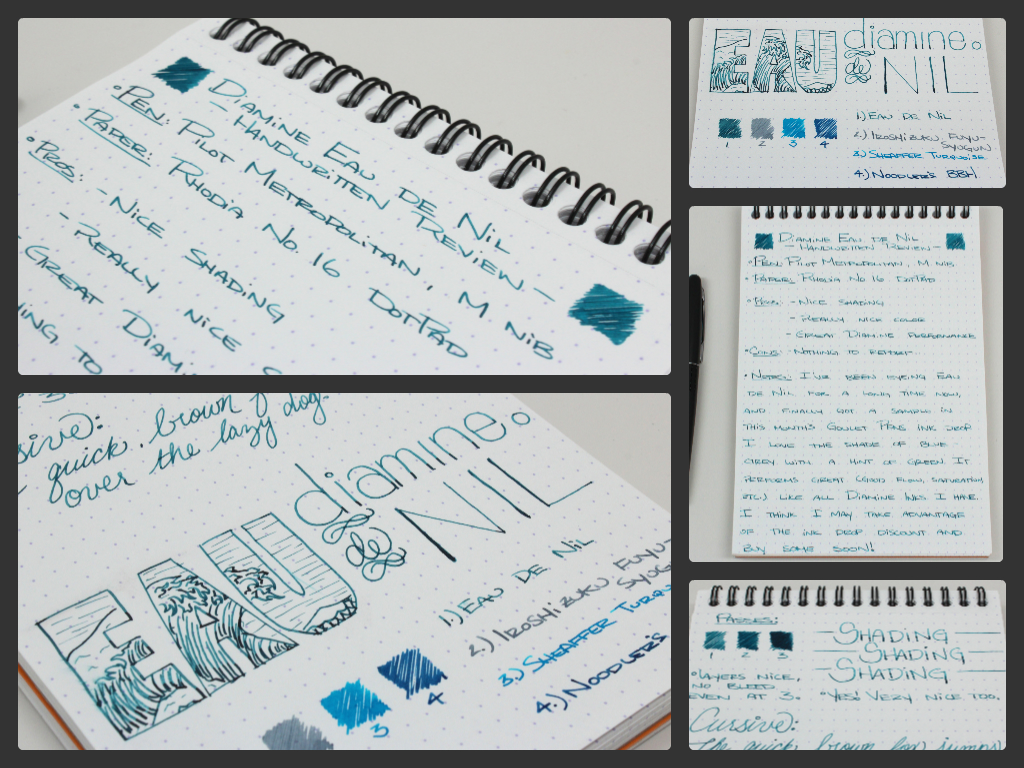 Diamine Eau de Nil
- Handwritten Review -
•Pen: Pilot Metropolitan, M nib
•Paper: Rhodia No. 16 DotPad
•Pros: - Nice shading
- Really nice
Great Diam
ing to
sive):
quick brown f
over the lazy dog.
EAU de diamine.
NIL
1.) Eau de Nil
2.) Iroshizuku Fuyu-
Syog
3.) Sheaffer Turqu
4.) Noodler's
3
4
EAU de diamine.
NIL
1 2 3 4
1.) Eau de Nil
2.) Iroshizuku Fuyu-
Syogun
3.) Sheaffer Turquoise
4.) Noodler's BBH
Diamine Eau de Nil
- Handwritten Review -
•Pen: Pilot Metropolitan, M nib
•Paper: Rhodia No 16 DotPad
•Pros: - Nice shading
- Really nice color
- Great Diamine performance
•Cons: Nothing to report
•Notes: I've been eyeing Eau
de Nil for a long time now,
and finally got a sample in
this month's Goulet Pens Ink Drop
I love the shade of blue
with a hint of green. It
performs great (good flow, saturation,
etc.) like all Diamine inks I have.
I think I may take advantage
of the ink drop discount and
buy some soon!
Passes:
1 2 3
Shading
Shading
Shading
•Layers nice,
no bleed
even at 3.
•Yes! Very nice too.
Cursive):
the quick brown fox jumps